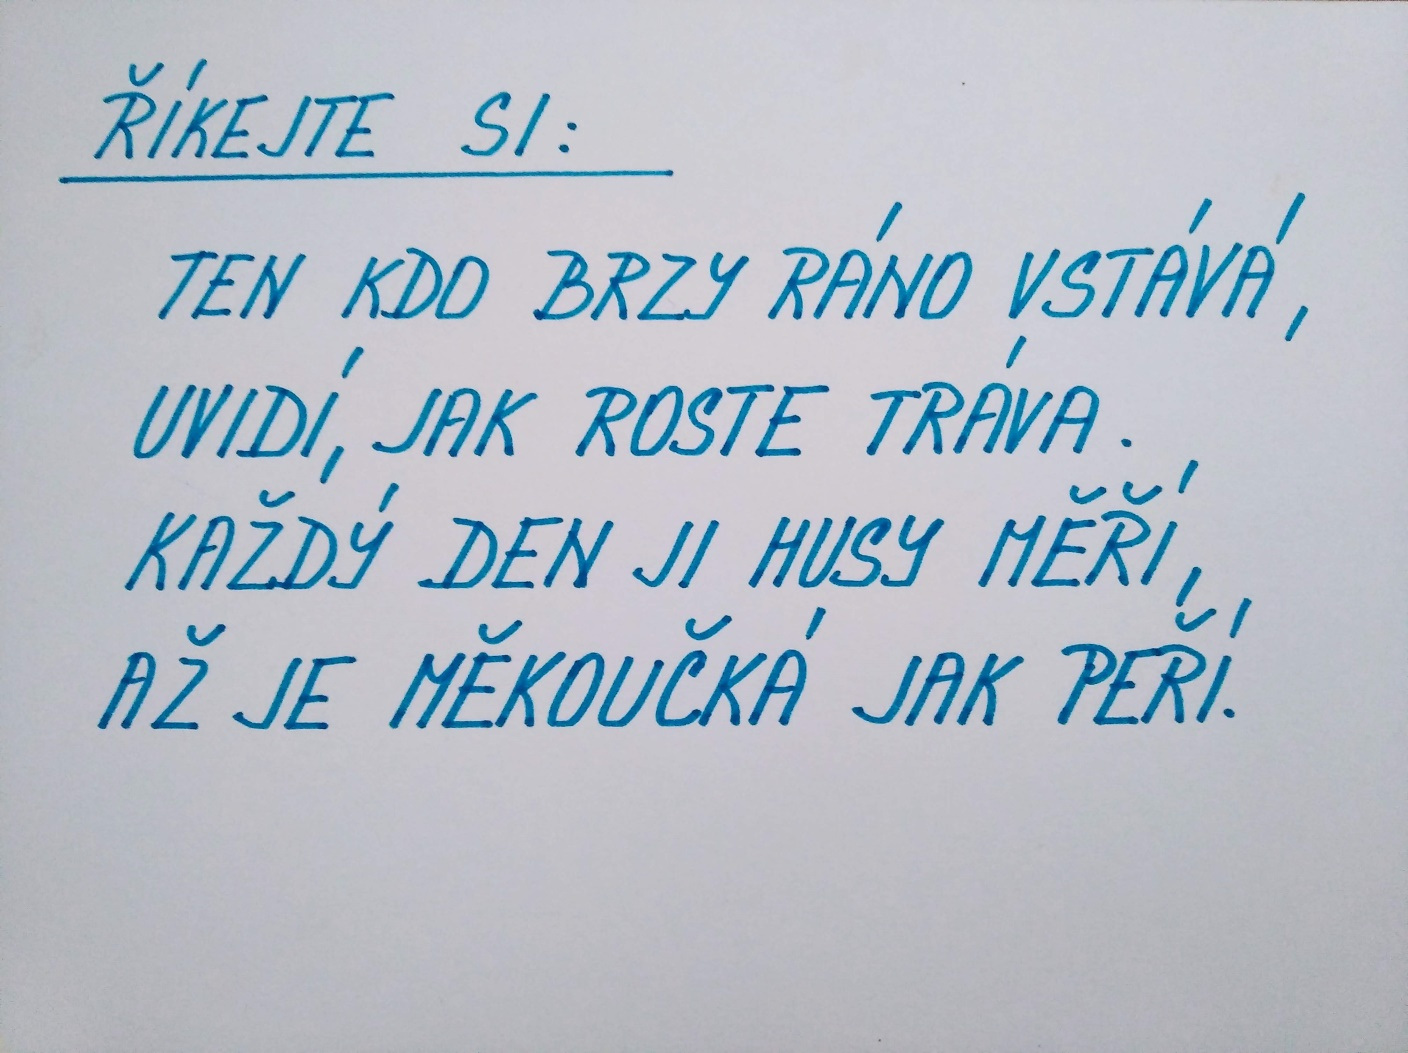 ŘÍKEJTE SI:
TEN KDO BRZY RÁNO VSTÁVÁ,
UVIDÍ, JAK ROSTE TRÁVA.
KAŽDÝ DEN JI HUSY MĚŘÍ,
AŽ JE MĚKOUČKÁ JAK PEŘÍ.